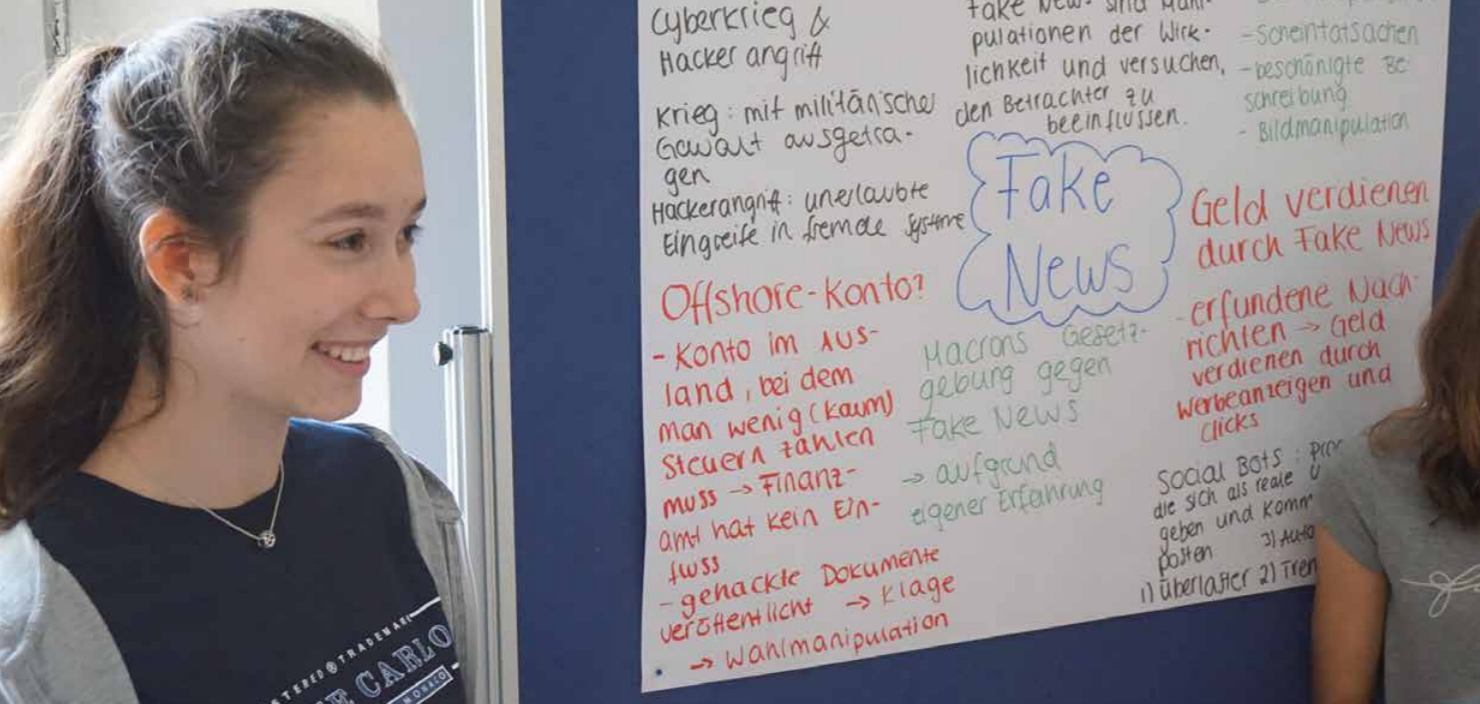 Cyberkrieg &
Hackerangriff
Krieg: mit militärischer
Gewalt ausgetra-
gen
Hackerangriff: unerlaubte
Eingreife in fremde Systeme
Offshore-Konto?
- Konto im Aus-
land, bei dem
man wenig (kaum)
Steuern zahlen
muss → Finanz-
amt hat kein Ein-
fluss
- gehackte Dokumente
veröffentlicht → Klage
→ Wahlmanipulation
Fake News sind Mani-
pulationen der Wirk-
lichkeit und versuchen,
den Betrachter zu
beeinflussen.
Fake
News
Macrons Gesetz-
gebung gegen
Fake News
→ aufgrund
eigener Erfahrung
- Scheintatsachen
- beschönigte Be-
schreibung
- Bildmanipulation
Geld verdienen
durch Fake News
- erfundene Nach-
richten → Geld
verdienen durch
Werbeanzeigen und
Clicks
Social Bots:
die sich als reale
geben und
posten 3)
1) Überlaster 2)
TRADEMARK
CARLO
MONACO